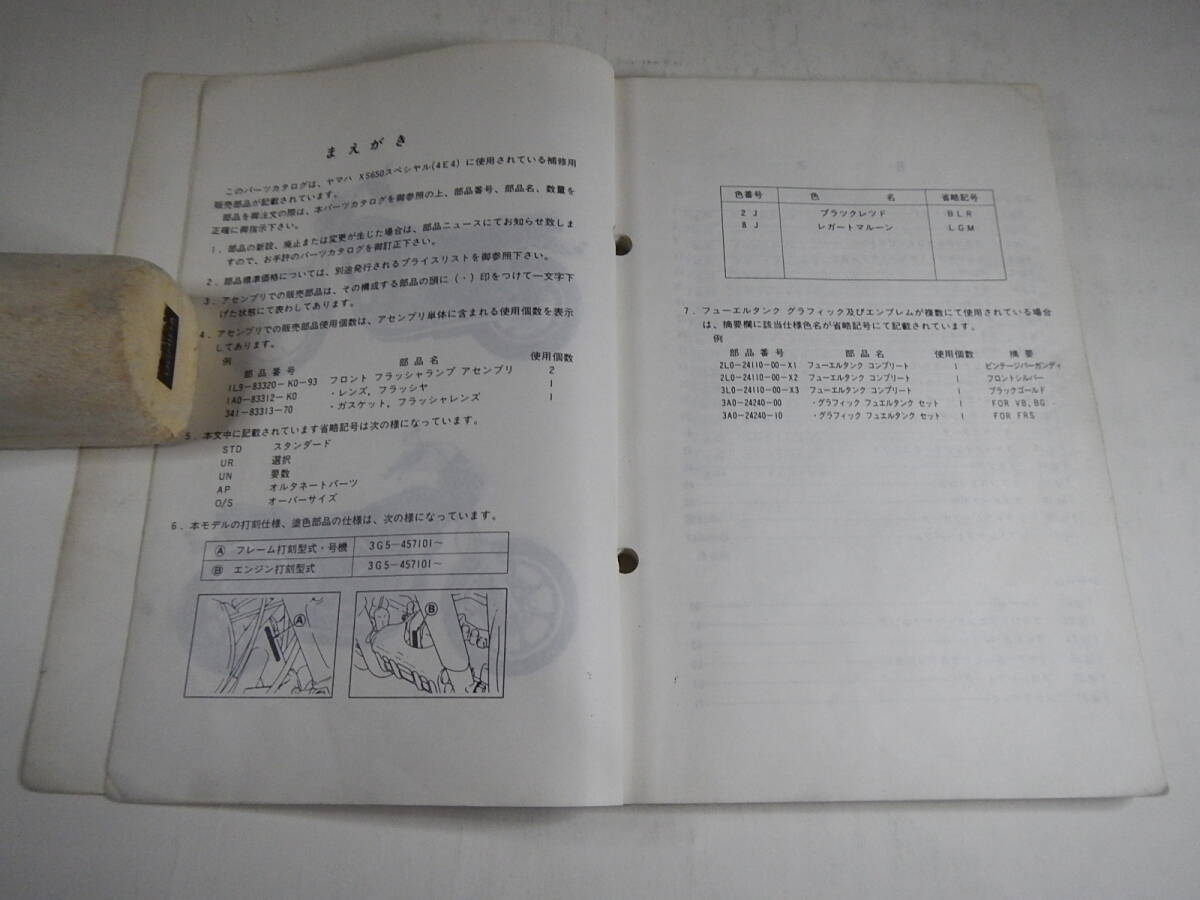 まえがき
このパーツカタログは、ヤマハ XS650スペシャル(4E4) に使用されている補修用
販売部品が記載されています。
部品を御注文の際は、本パーツカタログを御参照の上、部品番号、部品名、数量を
正確に御指示下さい。
1. 部品の新設、廃止または変更が生じた場合は、部品ニュースにてお知らせ致しま
すので、お手許のパーツカタログを御訂正下さい。
2. 部品標準価格については、別途発行されるプライスリストを御参照下さい。
3. アセンブリでの販売部品は、その構成する部品の頭に (・) 印をつけて一文字下
げた状態にて表わしてあります。
4. アセンブリでの販売部品使用個数は、アセンブリ単体に含まれる使用個数を表示
してあります。
例
部品番号 部品名 使用個数
1L9-83320-K0-93 フロント フラッシャランプ アセンブリ 2
1A0-83312-K0 ・レンズ, フラッシャ 1
341-83313-70 ・ガスケット, フラッシャレンズ 1
5. 本文中に記載されています省略記号は次の様になっています。
STD スタンダード
UR 選択
UN 要数
AP オルタネートパーツ
O/S オーバーサイズ
6. 本モデルの打刻仕様、塗色部品の仕様は、次の様になっています。
Ⓐ フレーム打刻型式・号機 3G5-457101~
Ⓑ エンジン打刻型式 3G5-457101~
Ⓐ Ⓑ
色番号 色名 省略記号
2J ブラックレッド BLR
8J レガートマルーン LGM
7. フューエルタンク グラフィック及びエンブレムが複数にて使用されている場合
は、摘要欄に該当仕様色名が省略記号にて記載されています。
例
部品番号 部品名 使用個数 摘要
2L0-24110-00-X1 フューエルタンク コンプリート 1 ビンテージバーガンディ
2L0-24110-00-X2 フューエルタンク コンプリート 1 フロントシルバー
3L0-24110-00-X3 フューエルタンク コンプリート 1 ブラックゴールド
3A0-24240-00 ・グラフィック フュエルタンク セット 1 FOR VB, BG
3A0-24240-10 ・グラフィック フュエルタンク セット 1 FOR FRS